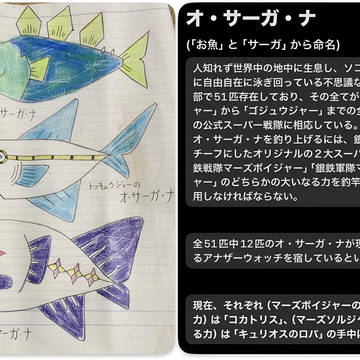 サーガ・ナ
トッキュウジャーの
オ・サーガ・ナ
サーガ・ナ
オ・サーガ・ナ
(「お魚」と「サーガ」から命名)
人知れず世界中の地中に生息し、ソコ
に自由自在に泳ぎ回っている不思議な
部で51匹存在しており、その全てが
ャー」から「ゴジュウジャー」までの全
の公式スーパー戦隊に相応している。
オ・サーガ・ナを釣り上げるには、銀
チーフにしたオリジナルの2大スーパ
鉄戦隊マーズボイジャー」「銀鉄軍隊マ
ャー」のどちらかの大いなる力を釣竿
用しなければならない。
全51匹中12匹のオ・サーガ・ナが現
るアナザーウォッチを宿しているとい
現在、それぞれ (マーズボイジャーの
力) は「コカトリス」、(マーズソルジャ
る力) は「キュリオスのロバ」の手中に